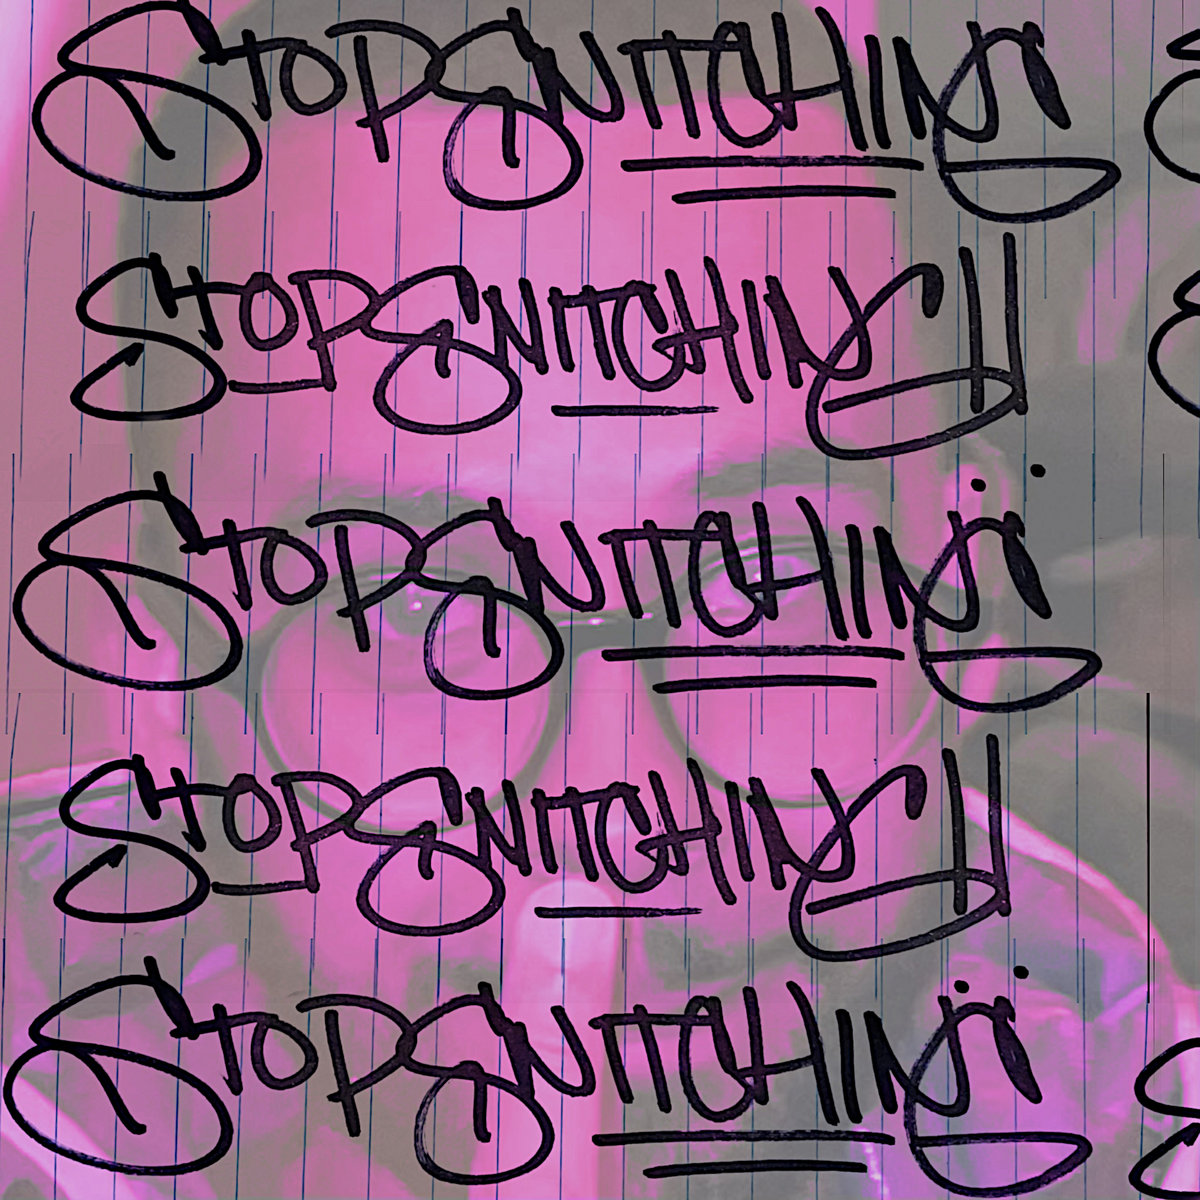 STOP SNITCHING
STOP SNITCHING!!
STOP SNITCHING
STOP SNITCHING!!
STOP SNITCHING